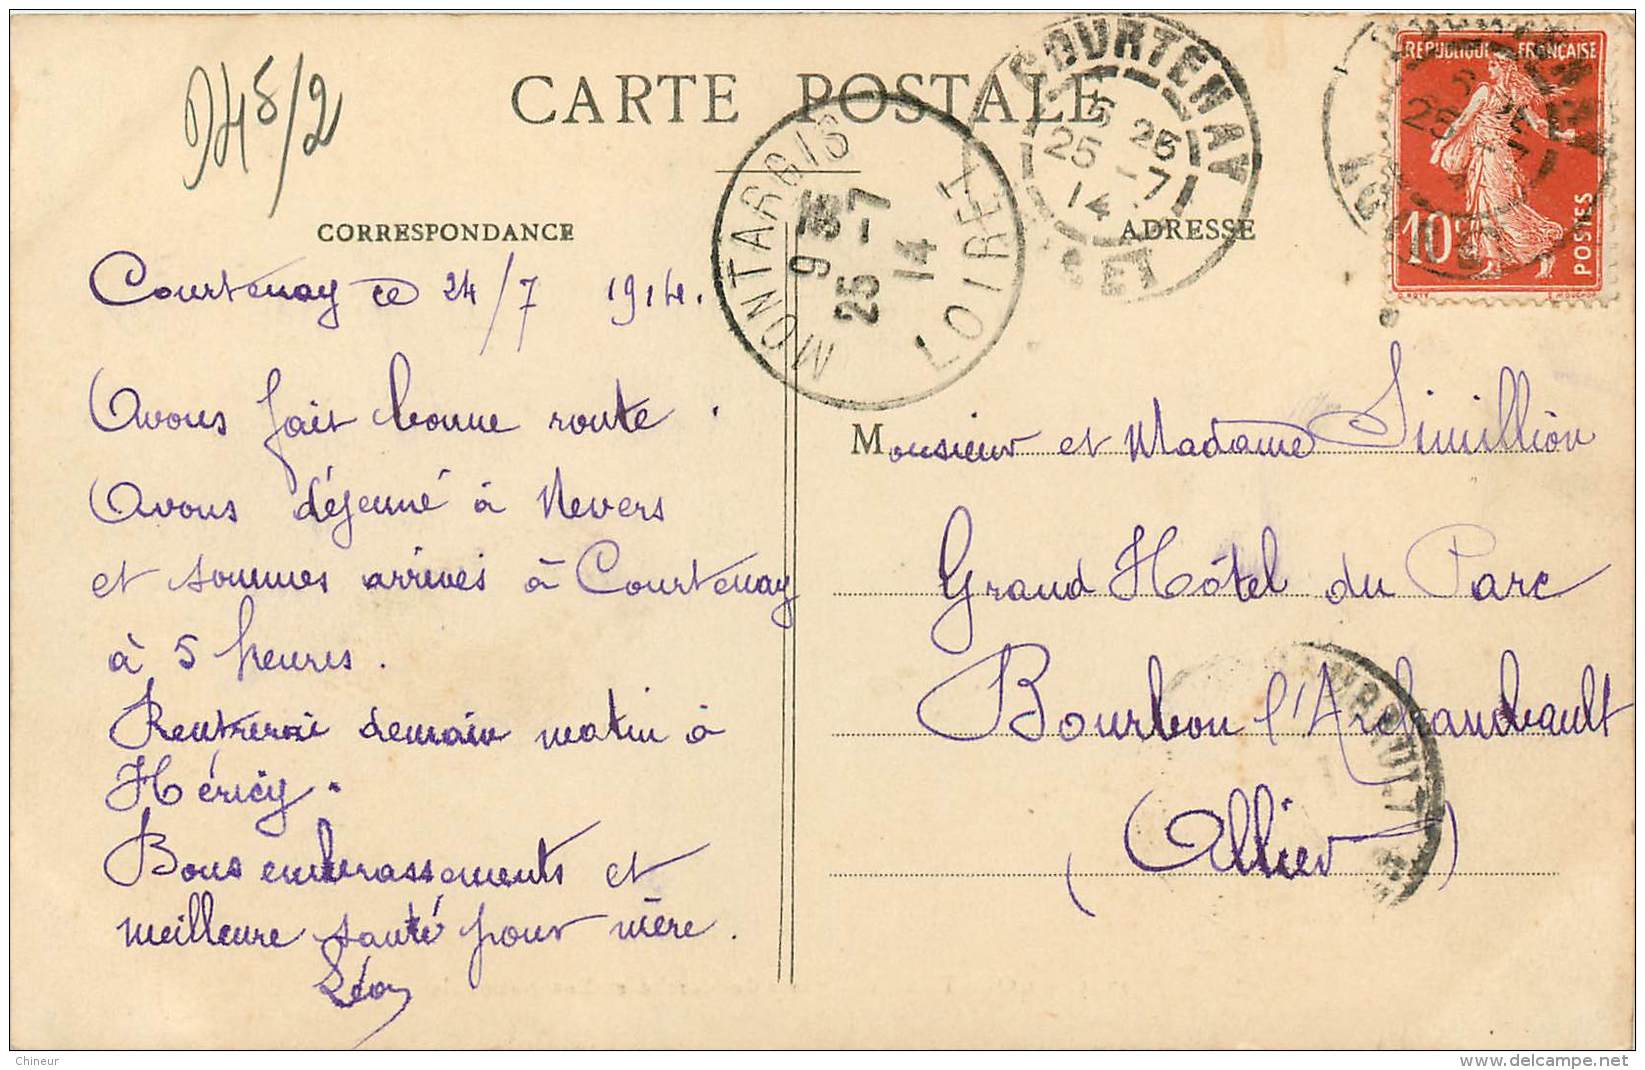 CARTE POSTALE
945/2
CORRESPONDANCE
ADRESSE
Courtenay ce 24/7 1914.
Avons fait bonne route.
Avons déjeuné à Nevers
et sommes arrivés à Courtenay
à 5 heures.
Rentrerai demain matin à
Héricy.
Bons embrassements et
meilleure santé pour mère.
Léon
MONTARGIS
9 35
25 -7
14
LOIRET
COURTENAY
15 25
25 -7
14
RÉPUBLIQUE FRANÇAISE
10c
POSTES
O. ROTY
E. MOUCHON
Monsieur et Madame Simillion
Grand Hôtel du Parc
Bourbon l'Archambault
(Allier)
Chineur
www.delcampe.net